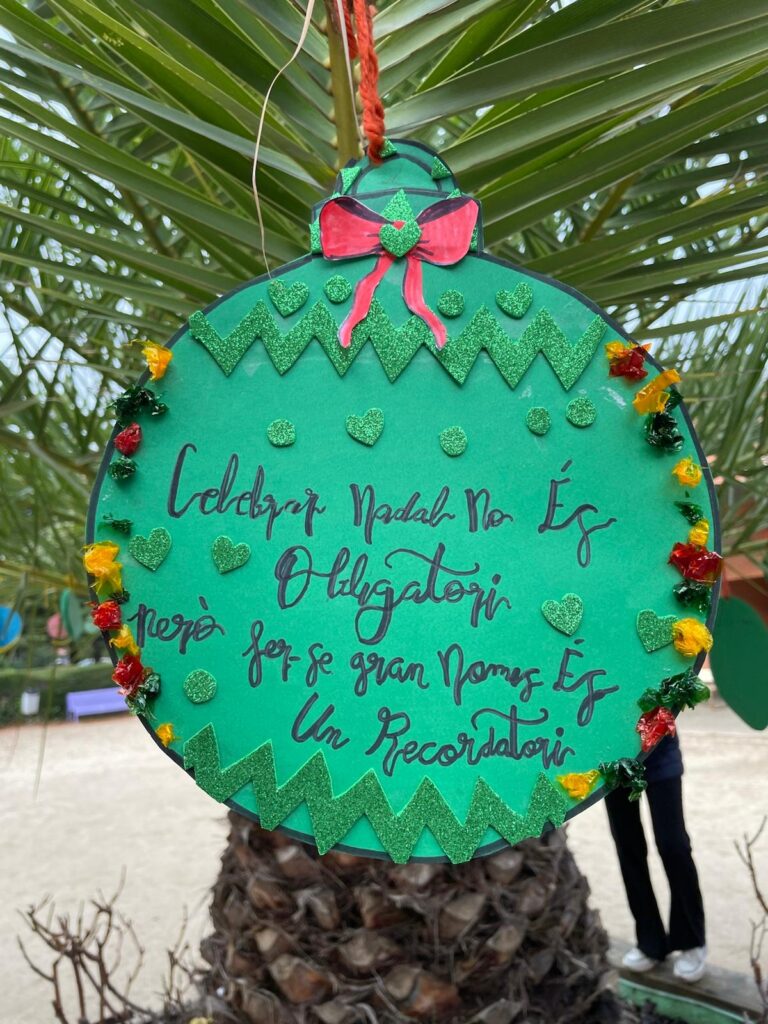 Celebrar Nadal No És
Obligatori
però fer-se gran Nomes És
Un Recordatori